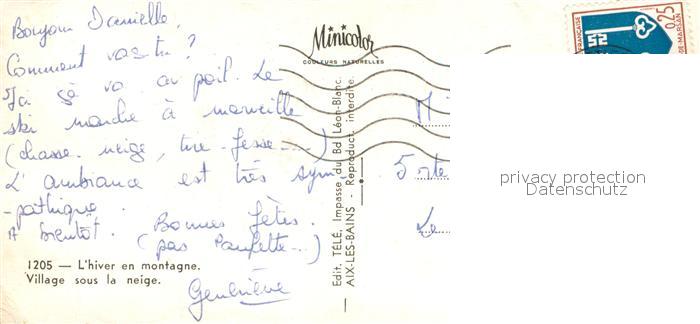 Bonjour Danielle,
Comment vas tu ?
Ici ça va au poil. Le
ski marche à merveille
(chasse-neige, tire-fesse....)
L'ambiance est très sym-
-pathique.
A bientôt. Bonnes fêtes.
(pas Paulette...)
Geneviève
1205 — L'hiver en montagne.
Village sous la neige.
Minicolor
COULEURS NATURELLES
Edit. TÉLÉ, Impasse du Bd Léon-Blanc.
AIX-LES-BAINS - Reproduct. interdite.
5 rte
Le
FRANÇAISE
0,25
DE-MARSAN
privacy protection
Datenschutz